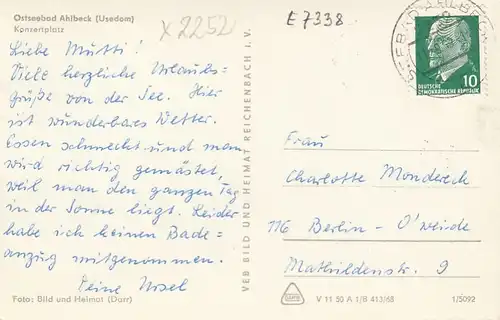 Ostseebad Ahlbeck (Usedom)
Konzertplatz
X 2252
E 7338
Liebe Mutti!
Viele herzliche Urlaubs=
grüße von der See. Hier
ist wunderbares Wetter.
Essen schmeckt und man
wird richtig gemästet,
weil man den ganzen Tag
in der Sonne liegt. Leider
habe ich keinen Bade=
anzug mitgenommen.
Deine Ursel
Foto: Bild und Heimat (Darr)
VEB BILD UND HEIMAT REICHENBACH i. V.
10
DEUTSCHE
DEMOKRATISCHE REPUBLIK
Frau
Charlotte Mondereck
116 Berlin - O'weide
Mathildenstr. 9
V 11 50 A 1/B 413/68
1/5092